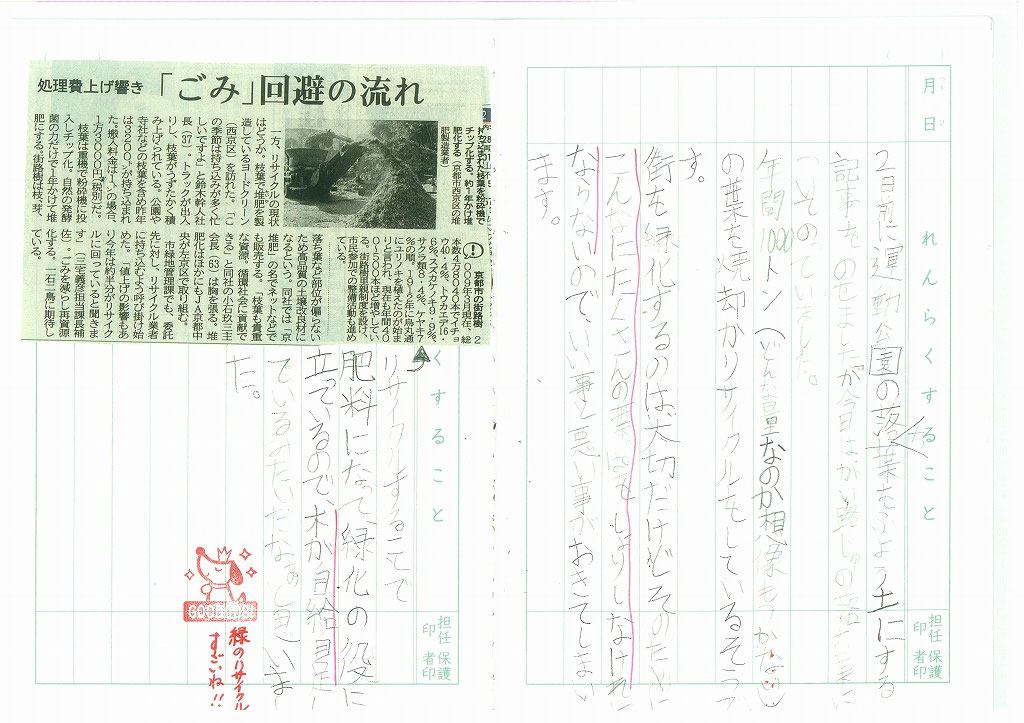 月 日
れんらくすること
2日前に運動公園の落葉をふよう土にする
記事をのせましたが今日はがい路じゅの落ち葉に
ついてのっていました。
年間1000トン(どんな量なのか想像もつかない)
の葉を焼却かリサイクルをしているそうで
す。
街を緑化するのは大切だけどそのために
こんなにたくさんの葉はをしょりしなけれ
ばならないので、いい事と悪い事がおきてしまい
ます。
担任印
保護者印
処理費上げ響き
「ごみ」回避の流れ
持ち込まれた枝葉を粉砕機で
チップ化する。約1年かけ堆
肥化する(京都市西京区の堆
肥製造業者)
一方、リサイクルの現状
はどうか。枝葉で堆肥を製
造しているヤードクリーン
(西京区)を訪れた。「こ
の季節は持ち込みが多く忙
しいですよ」と鈴木幹人社
長(37)。トラックが出入
りし、枝葉がうずたかく積
み上げられている。公園や
寺社などの枝葉を含め昨年
は3200㌧が持ち込まれ
た。搬入料金は1㌧の場合、
1万3000円(税別)だ。
枝葉は重機で粉砕機に投
入しチップ化。自然の発酵
菌の力だけで1年かけて堆
肥にする。街路樹は枝、芽、
落ち葉など部位が偏らない
ため高品質の土壌改良材に
なるという。同社では「京
堆肥」の名でネットなどで
も販売する。「枝葉も貴重
な資源。循環社会に貢献で
きる」と同社の小石玖三主
会長(63)は胸を張る。堆
肥化はほかにもJA京都中
央が左京区で取り組む。
市緑地管理課でも、委託
先に対し、リサイクル業者
に持ち込むよう呼び掛け始
めた。「値上げの影響もあ
り今年は約半分がリサイク
ルに回っていると聞きま
す」(三宅英彦担当課長補
佐)。ごみを減らし再資源
化する。一石二鳥に期待し
ている。
京都市の街路樹
2009年3月現在、総
本数4万8040本でイチョ
ウ40・4%、トウカエデ16・
6%、スズカケノキ9・9%、
サクラ類8・4%、ケヤキ7
%の順。1912年に烏丸通
にユリノキを植えたのが始ま
りと言われ、現在も年間40
0〜500本ほど増やしてい
る。街路樹里親制度を設け、
市民参加での整備活動も進め
ている。
くすること
リサイクルすることで
肥料になって緑化の役に
立っているので、木が自給自足し
ているみたいだなぁと思いまし
た。
GOOD
緑のリサイクル
すごいね!!
担任印
保護者印